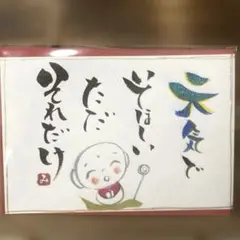 元気で
いてほしい
ただ
それだけ
み